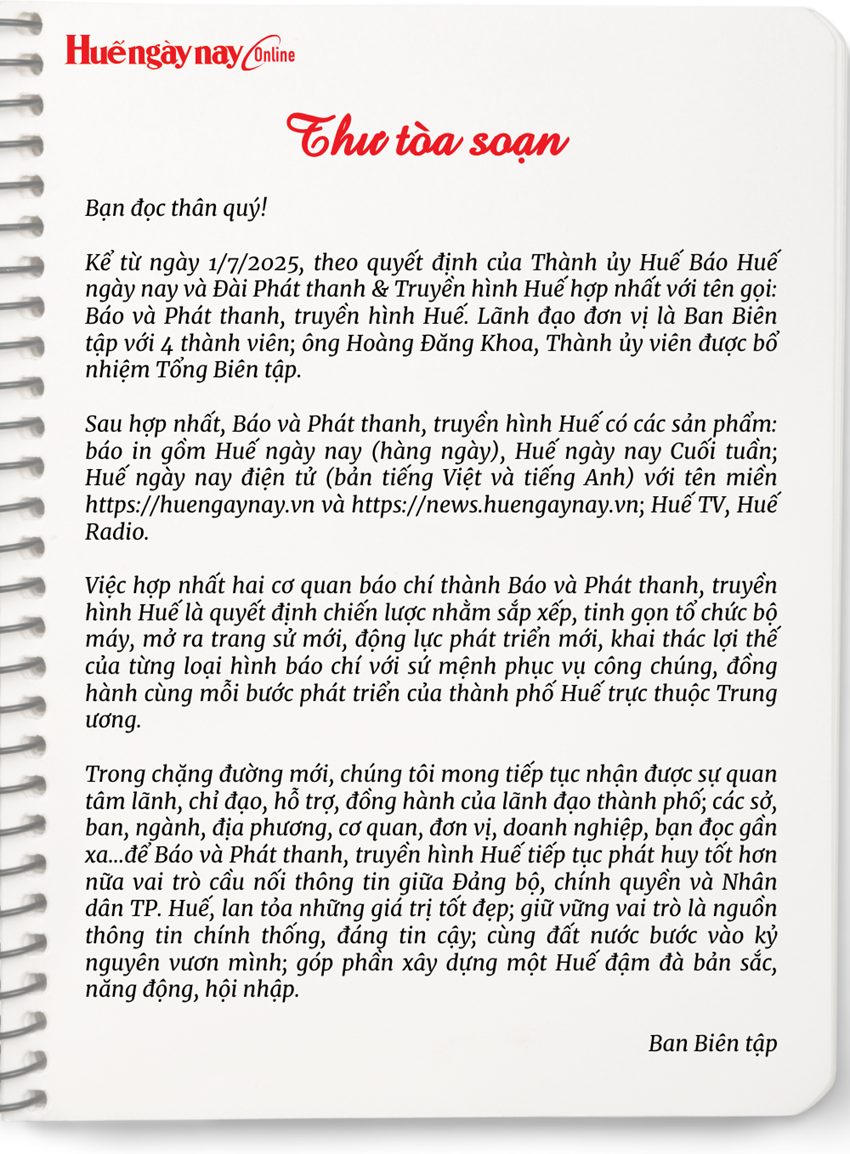 Huế ngày nay Online
Thư tòa soạn
Bạn đọc thân quý!
Kể từ ngày 1/7/2025, theo quyết định của Thành ủy Huế Báo Huế
ngày nay và Đài Phát thanh & Truyền hình Huế hợp nhất với tên gọi:
Báo và Phát thanh, truyền hình Huế. Lãnh đạo đơn vị là Ban Biên
tập với 4 thành viên; ông Hoàng Đăng Khoa, Thành ủy viên được bổ
nhiệm Tổng Biên tập.
Sau hợp nhất, Báo và Phát thanh, truyền hình Huế có các sản phẩm:
báo in gồm Huế ngày nay (hàng ngày), Huế ngày nay Cuối tuần;
Huế ngày nay điện tử (bản tiếng Việt và tiếng Anh) với tên miền
https://huengaynay.vn và https://news.huengaynay.vn; Huế TV, Huế
Radio.
Việc hợp nhất hai cơ quan báo chí thành Báo và Phát thanh, truyền
hình Huế là quyết định chiến lược nhằm sắp xếp, tinh gọn tổ chức bộ
máy, mở ra trang sử mới, động lực phát triển mới, khai thác lợi thế
của từng loại hình báo chí với sứ mệnh phục vụ công chúng, đồng
hành cùng mỗi bước phát triển của thành phố Huế trực thuộc Trung
ương.
Trong chặng đường mới, chúng tôi mong tiếp tục nhận được sự quan
tâm lãnh, chỉ đạo, hỗ trợ, đồng hành của lãnh đạo thành phố; các sở,
ban, ngành, địa phương, cơ quan, đơn vị, doanh nghiệp, bạn đọc gần
xa...để Báo và Phát thanh, truyền hình Huế tiếp tục phát huy tốt hơn
nữa vai trò cầu nối thông tin giữa Đảng bộ, chính quyền và Nhân
dân TP. Huế, lan tỏa những giá trị tốt đẹp; giữ vững vai trò là nguồn
thông tin chính thống, đáng tin cậy; cùng đất nước bước vào kỷ
nguyên vươn mình; góp phần xây dựng một Huế đậm đà bản sắc,
năng động, hội nhập.
Ban Biên tập